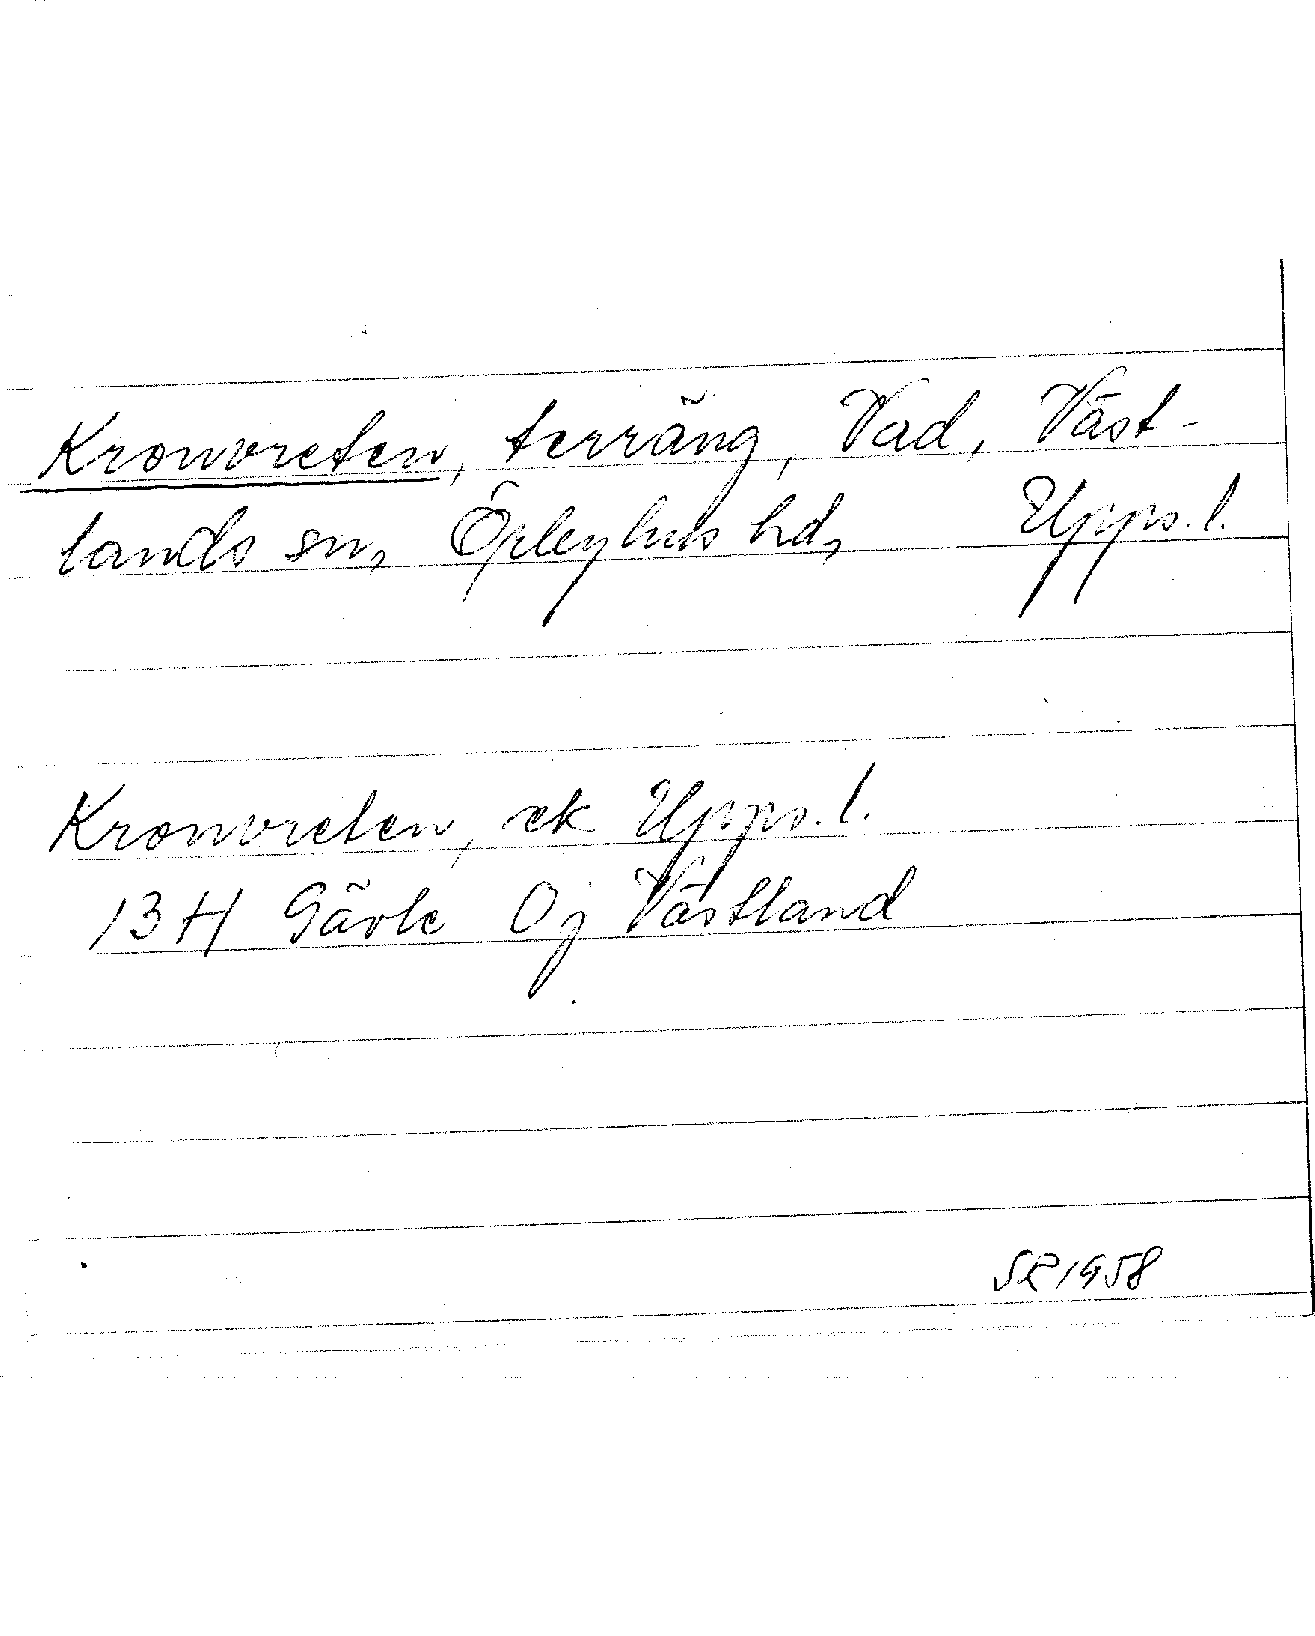 Kronvreten, terräng, Vad, Väst-
lands sn, Örbyhus hd, Upps. l.
Kronvreten, ek Upps. l.
13H Gävle 0j Västland
SR 1958